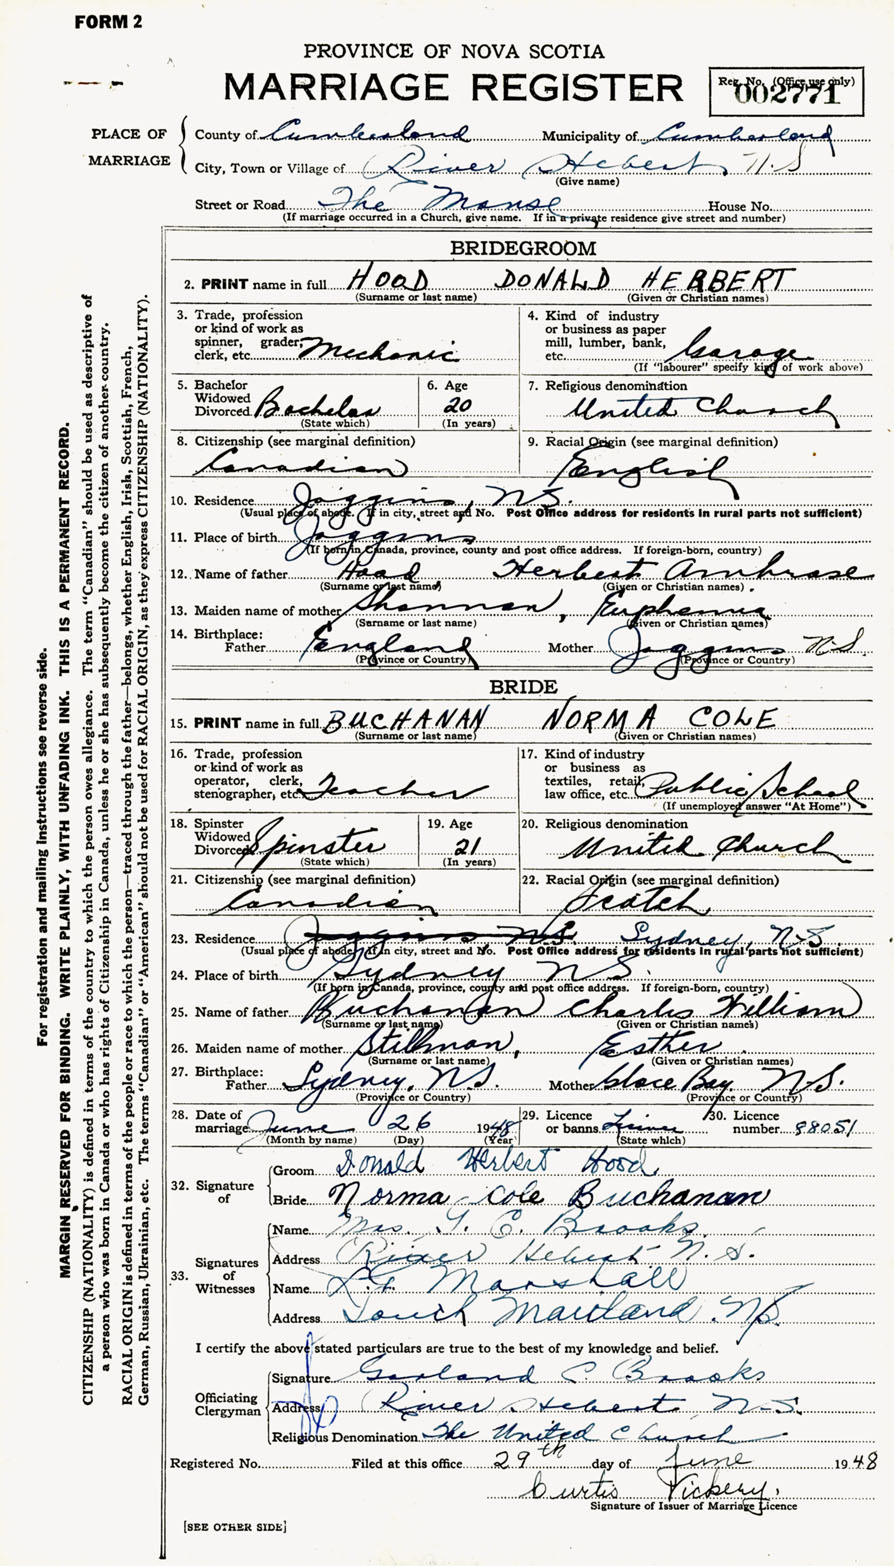 FORM 2
PROVINCE OF NOVA SCOTIA
MARRIAGE REGISTER
Reg. No. (Office use only)
002771
PLACE OF MARRIAGE
County of Cumberland Municipality of Cumberland
City, Town or Village of River Hebert, N.S
(Give name)
Street or Road The Manse House No.
(If marriage occurred in a Church, give name. If in a private residence give street and number)
BRIDEGROOM
2. PRINT name in full HOOD DONALD HERBERT
(Surname or last name) (Given or Christian names)
3. Trade, profession or kind of work as spinner, grader, clerk, etc. Mechanic
4. Kind of industry or business as paper mill, lumber, bank, etc. Garage
(If "labourer" specify kind of work above)
5. Bachelor Widowed Divorced Bachelor
(State which)
6. Age 20
(In years)
7. Religious denomination United Church
8. Citizenship (see marginal definition) Canadian
9. Racial Origin (see marginal definition) English
10. Residence Joggins, N.S.
(Usual place of abode. If in city, street and No. Post Office address for residents in rural parts not sufficient)
11. Place of birth Joggins
(If born in Canada, province, county and post office address. If foreign-born, country)
12. Name of father Hood Herbert Ambrose
(Surname or last name) (Given or Christian names)
13. Maiden name of mother Shannon, Euphemia
(Surname or last name) (Given or Christian names)
14. Birthplace: Father England Mother Joggins N.S.
(Province or Country) (Province or Country)
BRIDE
15. PRINT name in full BUCHANAN NORMA COLE
(Surname or last name) (Given or Christian names)
16. Trade, profession or kind of work as operator, clerk, stenographer, etc. Teacher
17. Kind of industry or business as textiles, retail, law office, etc. Public School
(If unemployed answer "At Home")
18. Spinster Widowed Divorced Spinster
(State which)
19. Age 21
(In years)
20. Religious denomination United Church
21. Citizenship (see marginal definition) Canadian
22. Racial Origin (see marginal definition) Scotch
23. Residence Joggins N.S. Sydney, N.S.
(Usual place of abode. If in city, street and No. Post Office address for residents in rural parts not sufficient)
24. Place of birth Sydney N.S.
(If born in Canada, province, county and post office address. If foreign-born, country)
25. Name of father Buchanan Charles William
(Surname or last name) (Given or Christian names)
26. Maiden name of mother Stillman, Esther
(Surname or last name) (Given or Christian names)
27. Birthplace: Father Sydney, N.S. Mother Glace Bay, N.S.
(Province or Country) (Province or Country)
28. Date of marriage June 26 1948
(Month by name) (Day) (Year)
29. Licence or banns
(State which)
30. Licence number 88051
32. Signature of
Groom Donald Herbert Hood
Bride Norma Cole Buchanan
33. Signatures of Witnesses
Name Mrs. G. C. Brooks
Address River Hebert N.S.
Name Marshall
Address South Maitland N.S.
I certify the above stated particulars are true to the best of my knowledge and belief.
Officiating Clergyman
Signature Garland C Brooks
Address River Hebert, N.S.
Religious Denomination The United Church
Registered No. Filed at this office 29th day of June 1948
Curtis Vickery.
Signature of Issuer of Marriage Licence
[SEE OTHER SIDE]
For registration and mailing instructions see reverse side.
MARGIN RESERVED FOR BINDING. WRITE PLAINLY, WITH UNFADING INK. THIS IS A PERMANENT RECORD.
CITIZENSHIP (NATIONALITY) is defined in terms of the country to which the person owes allegiance. The term "Canadian" should be used as descriptive of
a person who was born in Canada or who has rights of Citizenship in Canada, unless he or she has subsequently become the citizen of another country.
RACIAL ORIGIN is defined in terms of the people or race to which the person—traced through the father—belongs, whether English, Irish, Scottish, French,
German, Russian, Ukrainian, etc. The terms "Canadian" or "American" should not be used for RACIAL ORIGIN, as they express CITIZENSHIP (NATIONALITY).